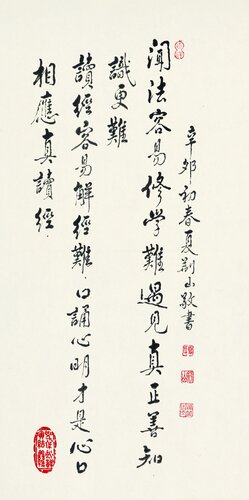 聞法容易修學難遇見真正善知
識更難
讀經容易解經難口誦心明才是心口
相應真讀經
辛卯初春夏荊山敬書